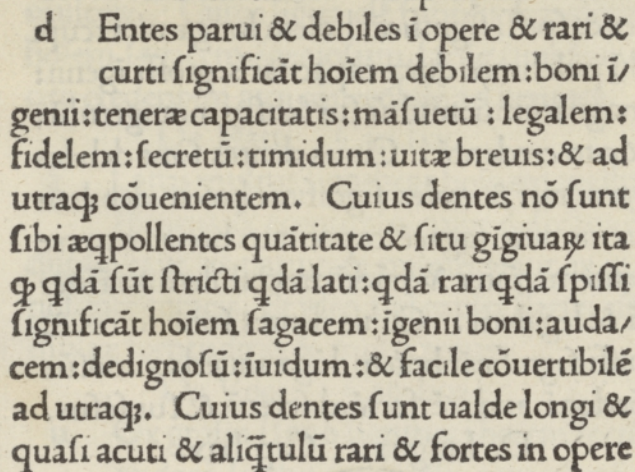 d Entes parui & debiles ī opere & rari &
curti ſignificāt hoīem debilem: boni ī/
genii: teneræ capacitatis: māſuetū: legalem:
fidelem: ſecretū: timidum: uitæ breuis: & ad
utraqꝫ cōuenientem. Cuius dentes nō ſunt
ſibi æqpollentes quātitate & ſitu gīgiuaꝝ ita
ꝙ qdā ſūt ſtricti qdā lati: qdā rari qdā ſpiſſi
ſignificāt hoīem ſagacem: īgenii boni: auda/
cem: dedignoſū: īuidum: & facile cōuertibilē
ad utraqꝫ. Cuius dentes ſunt ualde longi &
quaſi acuti & aliq̄tulū rari & fortes in opere